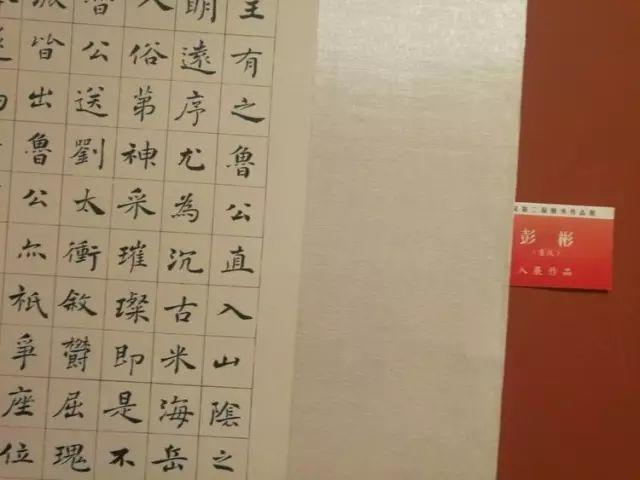 有之魯公直入山陰之
明遠序尤為沉古米海岳
人俗第神采璀璨即是不
公送劉太衝敘鬱屈瑰
派皆出魯公亦祇爭座位
作品展
彭彬
（重庆）
入展作品